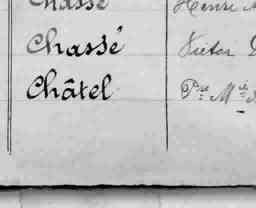 Chassé
Chassé Victor
Châtel Pre Mie